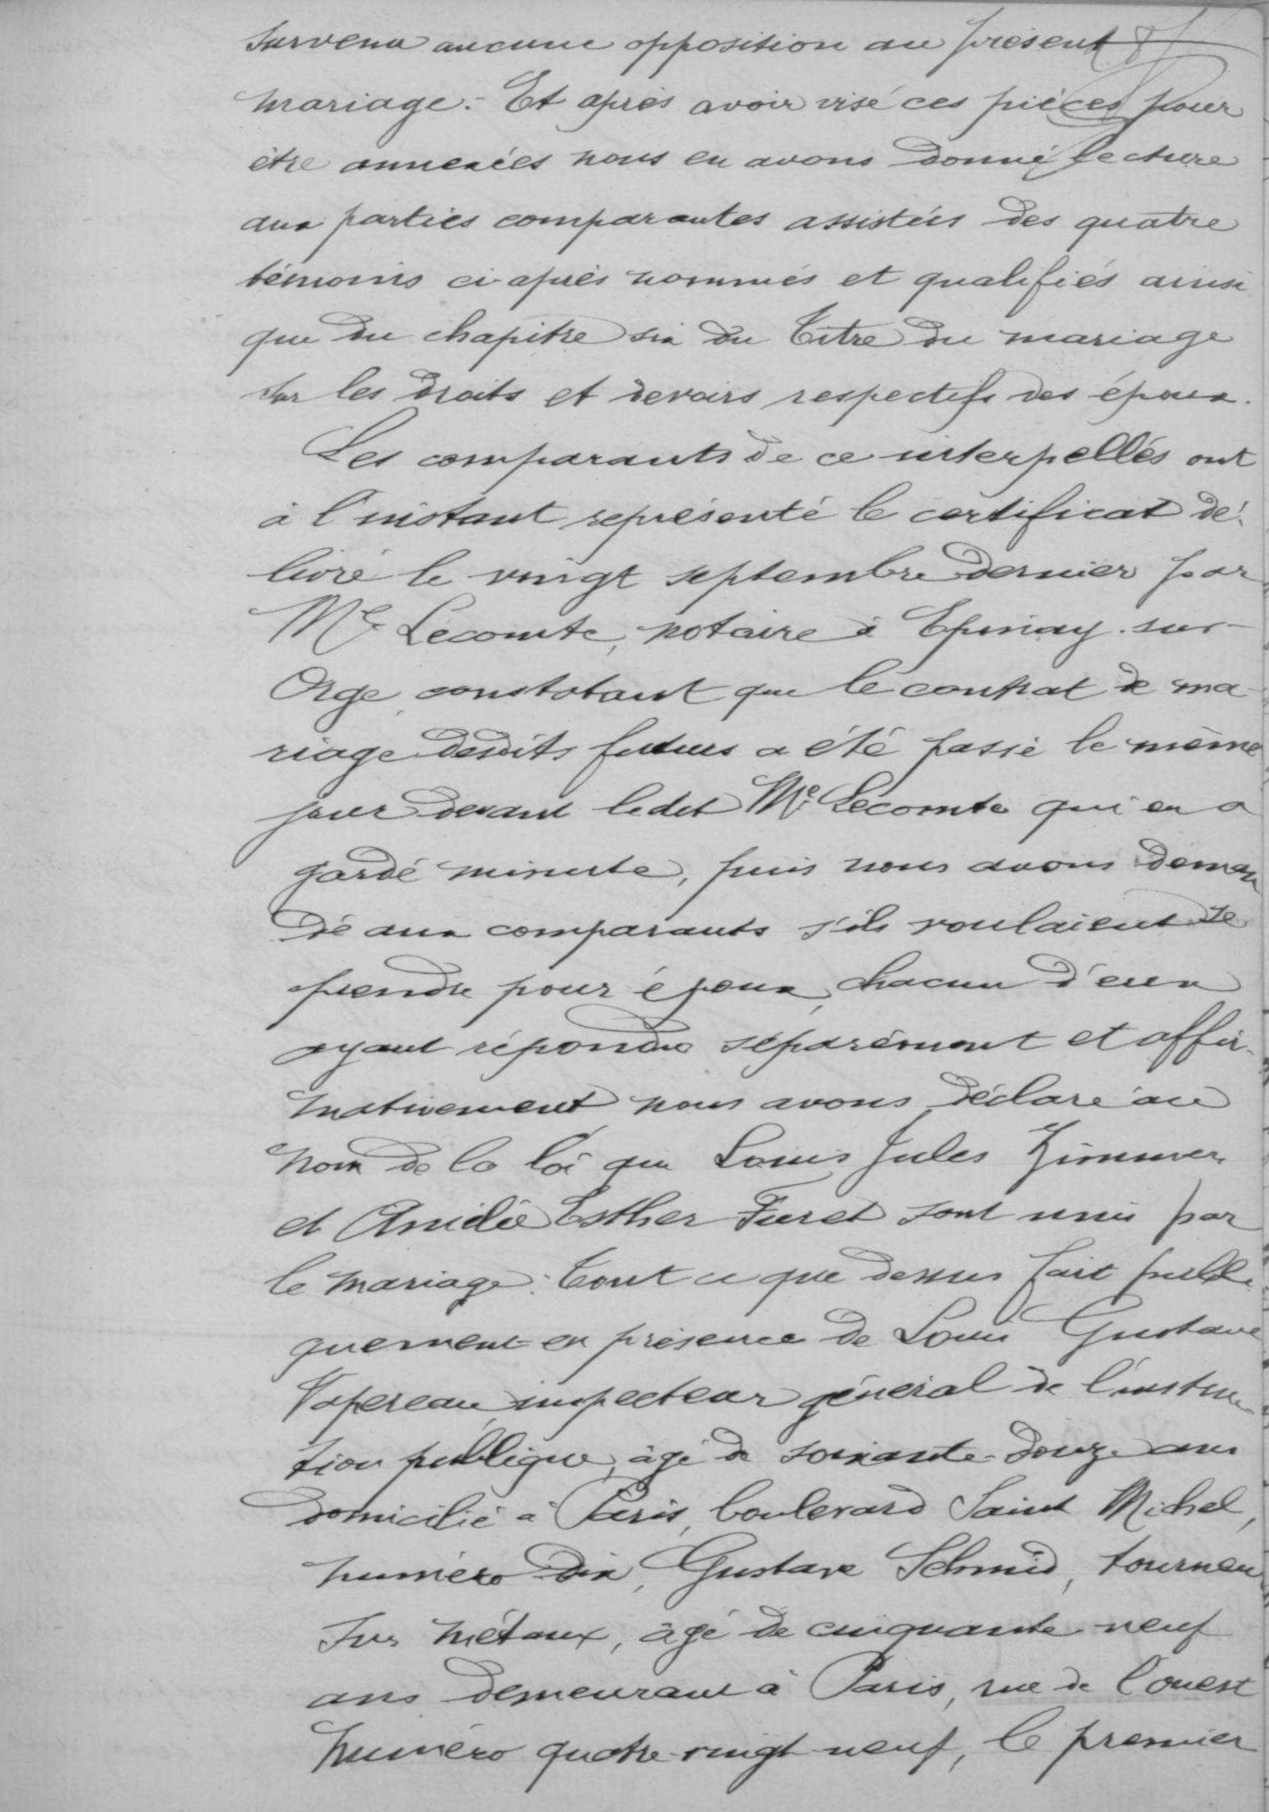 survenu aucune opposition au présent
mariage. Et après avoir visé ces pièces pour
être annexées nous en avons donné lecture
aux parties comparantes assistées des quatre
témoins ci-après nommés et qualifiés ainsi
que du chapitre six du Titre du mariage
sur les droits et devoirs respectifs des époux.
Les comparants de ce interpellés ont
à l'instant représenté le certificat dé-
livré le vingt septembre dernier par
Me Lecomte, notaire à Epinay-sur-
Orge, constatant que le contrat de ma-
riage desdits futurs a été passé le même
jour devant ledit Me Lecomte qui en a
gardé minute, puis nous avons deman
dé aux comparants s'ils voulaient se
prendre pour époux, chacun d'eux
ayant répondu séparément et affir-
mativement nous avons déclaré au
nom de la loi que Louis Jules Zimmer
et Amélie Esther Furet sont unis par
le mariage. Tout ce que dessus fait publi
quement en présence de Louis Gustave
Vapereau, inspecteur général de l'instruc
tion publique, âgé de soixante-douze ans
domicilié à Paris, boulevard Saint Michel,
numéro dix, Gustave Schmid, tourneur
sur métaux, âgé de cinquante-neuf
ans demeurant à Paris, rue de l'ouest
numéro quatre-vingt-neuf, le premier